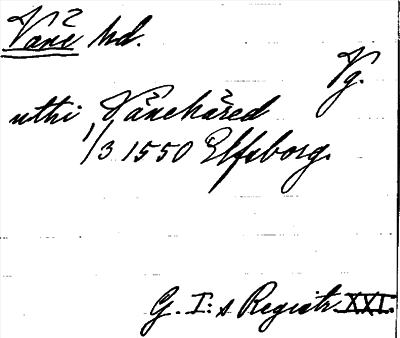 Väne hd.
Vg.
uthi Wänehäred
1/3 1550 Elfsborg.
G. I:s Registr. XXI.